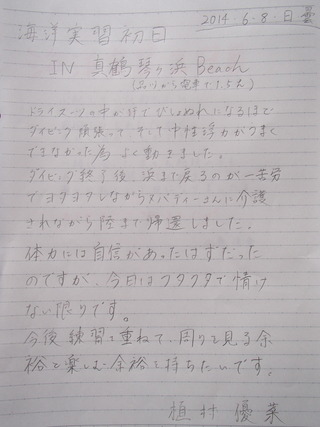 2014.6.8.日 曇
海洋実習初日
IN 真鶴琴ヶ浜 Beach
(品川から電車で1.5h)
ドライスーツの中が汗でびしょぬれになるほど
ダイビング頑張って、そして中性浮力がうまく
できなかった為 よく動きました。
ダイビング終了後、浜まで戻るのが一苦労
でヨタヨタしながらバディーさんに介護
されながら陸まで帰還しました。
体力には自信があったはずだった
のですが、今日はクタクタで情け
ない限りです。
今後練習を重ねて、周りを見る余
裕と楽しむ余裕を持ちたいです。
植村 優菜